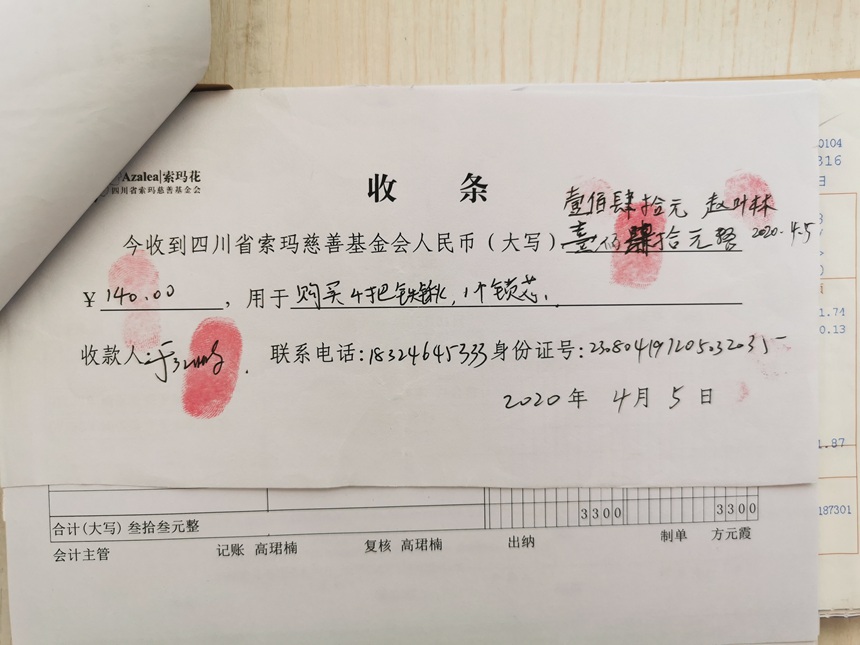 Azalea|索玛花
四川省索玛慈善基金会
收 条
壹佰肆拾元 赵叶林
2020.4.5
今收到四川省索玛慈善基金会人民币（大写）壹佰肆拾元整
¥ 140.00 ，用于 购买4把铁锹，1个锁芯．
收款人： 联系电话：18324645333 身份证号：230804197205032035
2020年 4月 5日
合计(大写) 叁拾叁元整 3300 3300
会计主管 记账 高珺楠 复核 高珺楠 出纳 制单 方元霞
0104
316
日
1.74
0.13
1.87
187301